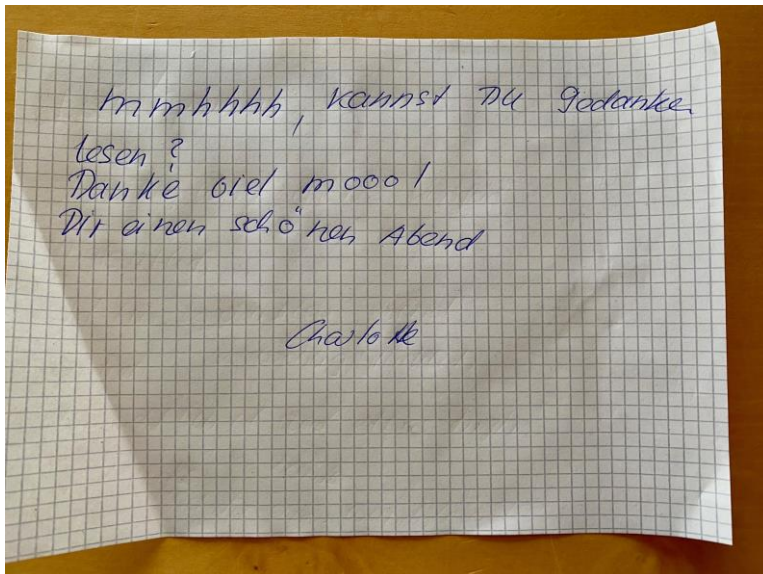 mmhhhh, kannst Du Gedanken
lesen?
Danke viel mooo!
Dir einen schönen Abend
Charlotte